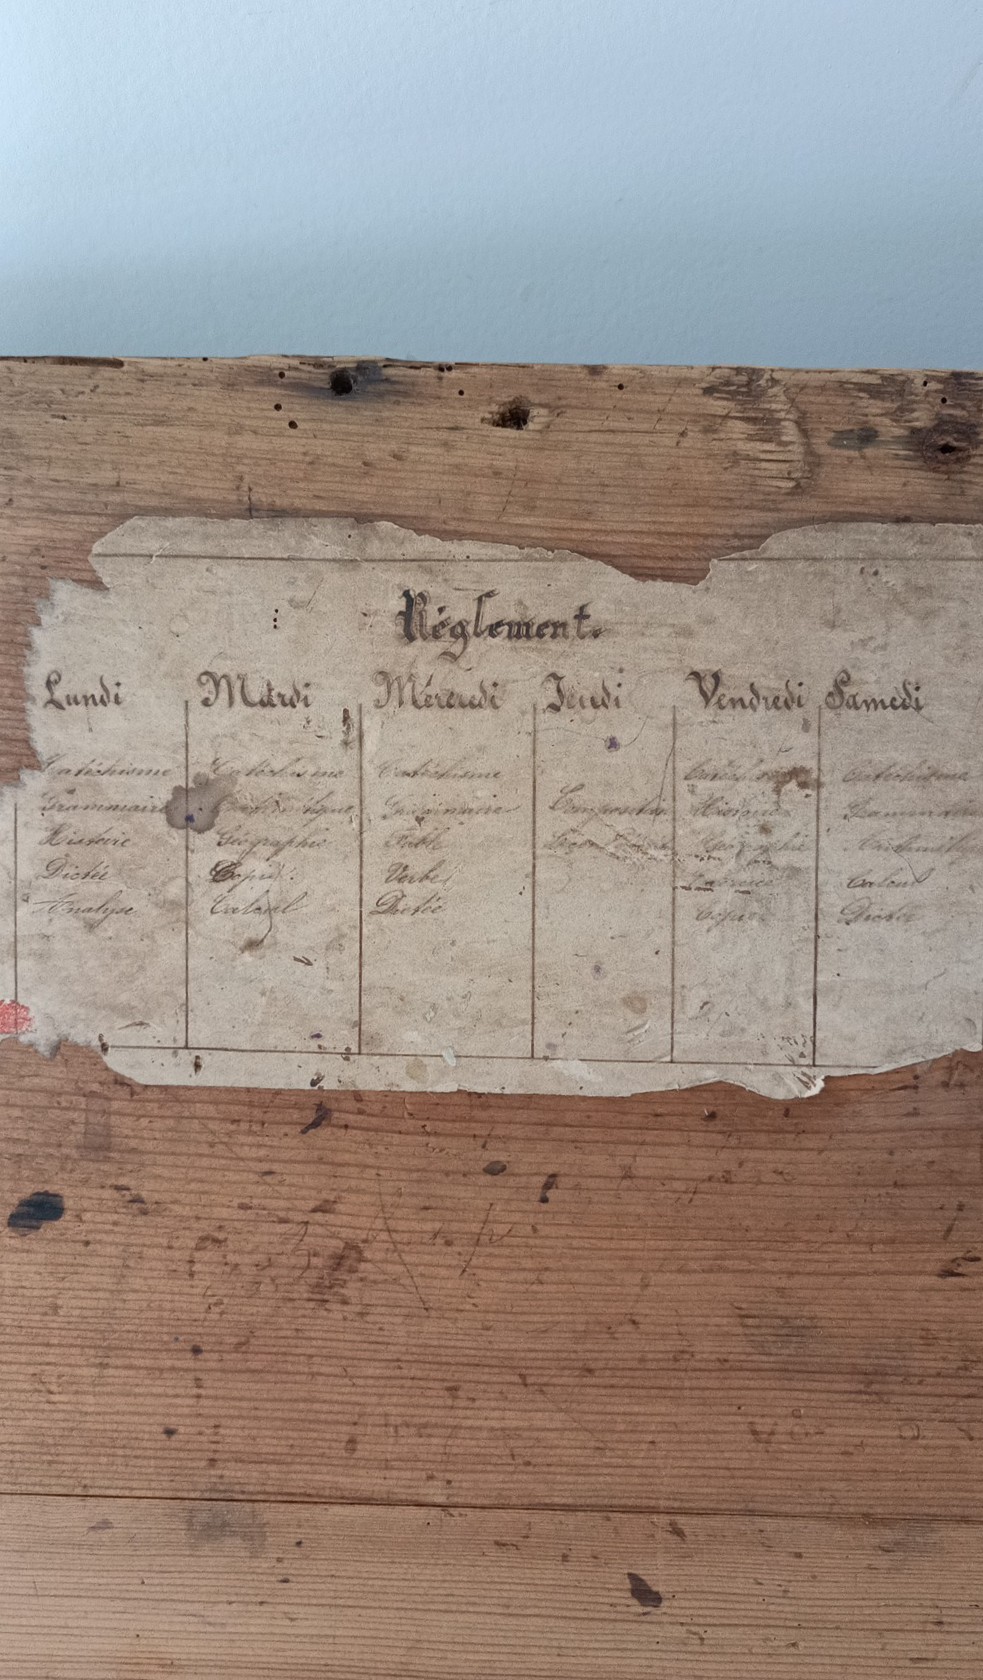 Réglement.
Lundi Mardi Mercredi Jeudi Vendredi Samedi
Catéchisme Catéchisme Catéchisme Catéchisme Catéchisme
Grammaire Grammaire Composition Histoire Grammaire
Histoire Géographie Fable Géographie
Dictée Copie Verbe Calcul
Analyse Calcul Dictée Copie Dictée